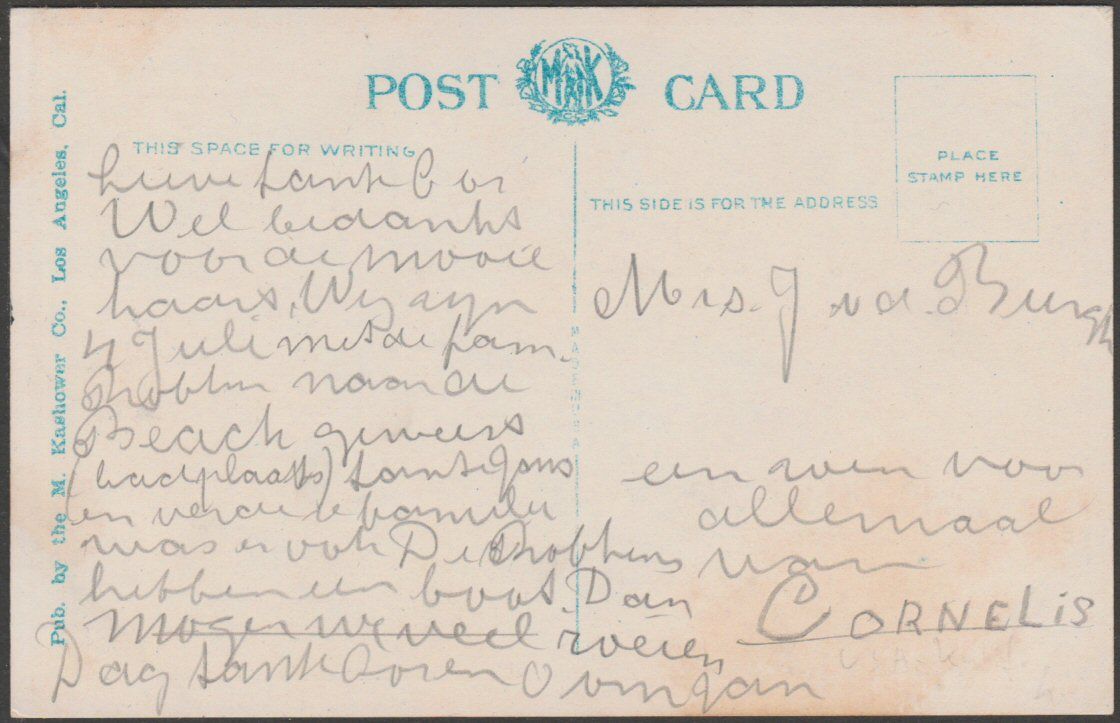 Pub. by the M. Kashower Co., Los Angeles, Cal.
POST CARD
M K
THIS SPACE FOR WRITING
PLACE
STAMP HERE
THIS SIDE IS FOR THE ADDRESS
Lieve tante Cor
Wel bedankt
voor de mooie
kaart, Wij zijn
4 Juli met de fam.
naar de
Beach geweest
(badplaats) tante Jans
en verdere familie
was er ook De
hebben een boot. Dan
mogen we veel roeien
Dag tante Cor en Oom Jan
Mrs. J. v.d. Burgh
een zoen voor
allemaal
van
CORNELIS